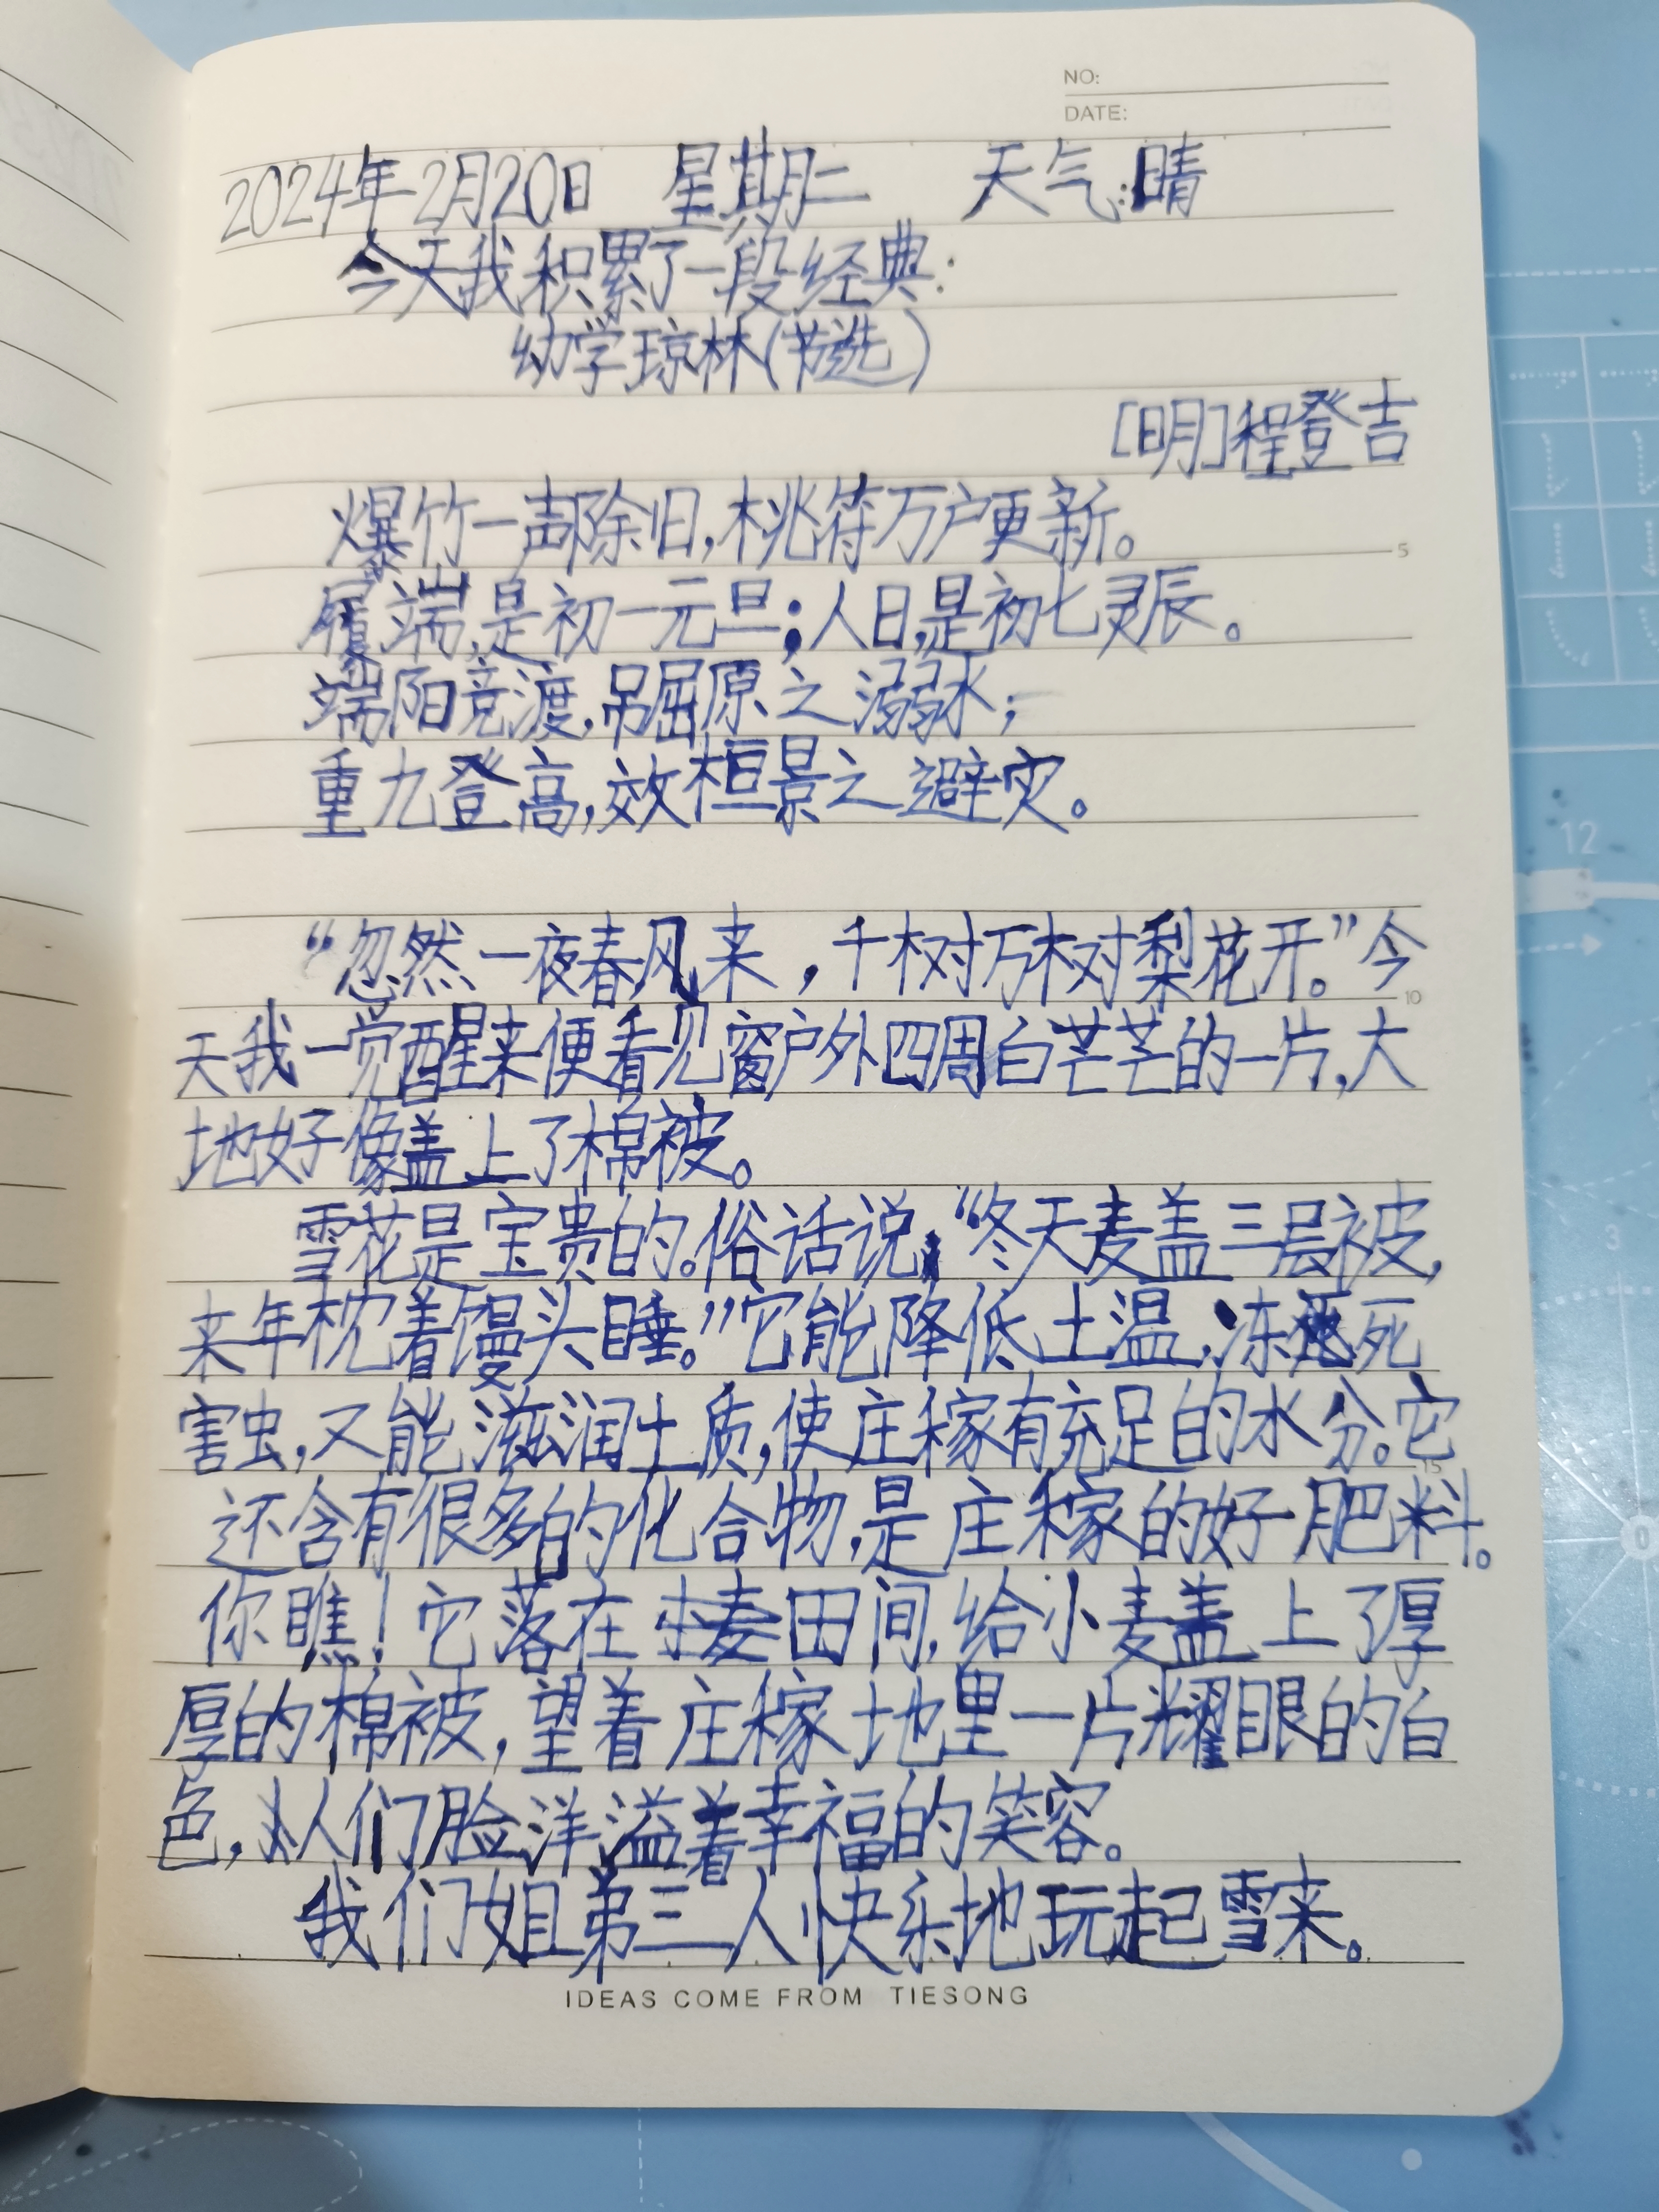 NO:
DATE:
2024年2月20日 星期二 天气:晴
今天我积累了一段经典:
幼学琼林(节选)
[明]程登吉
爆竹一声除旧,桃符万户更新。
履端,是初一元旦;人日,是初七灵辰。
端阳竞渡,吊屈原之溺水;
重九登高,效桓景之避灾。
“忽然一夜春风来,千树万树梨花开。”今
天我一觉醒来便看见窗户外四周白茫茫的一片,大
地好像盖上了棉被。
雪花是宝贵的。俗话说,“冬天麦盖三层被,
来年枕着馒头睡。”它能降低土温,冻死
害虫,又能滋润土质,使庄稼有充足的水分。它
还含有很多的化合物,是庄稼的好肥料。
你瞧!它落在麦田间,给小麦盖上了厚
厚的棉被,望着庄稼地里一片耀眼的白
色,人们脸洋溢着幸福的笑容。
我们姐弟三人快乐地玩起雪来。
IDEAS COME FROM TIESONG
5
10
15
12
3
0